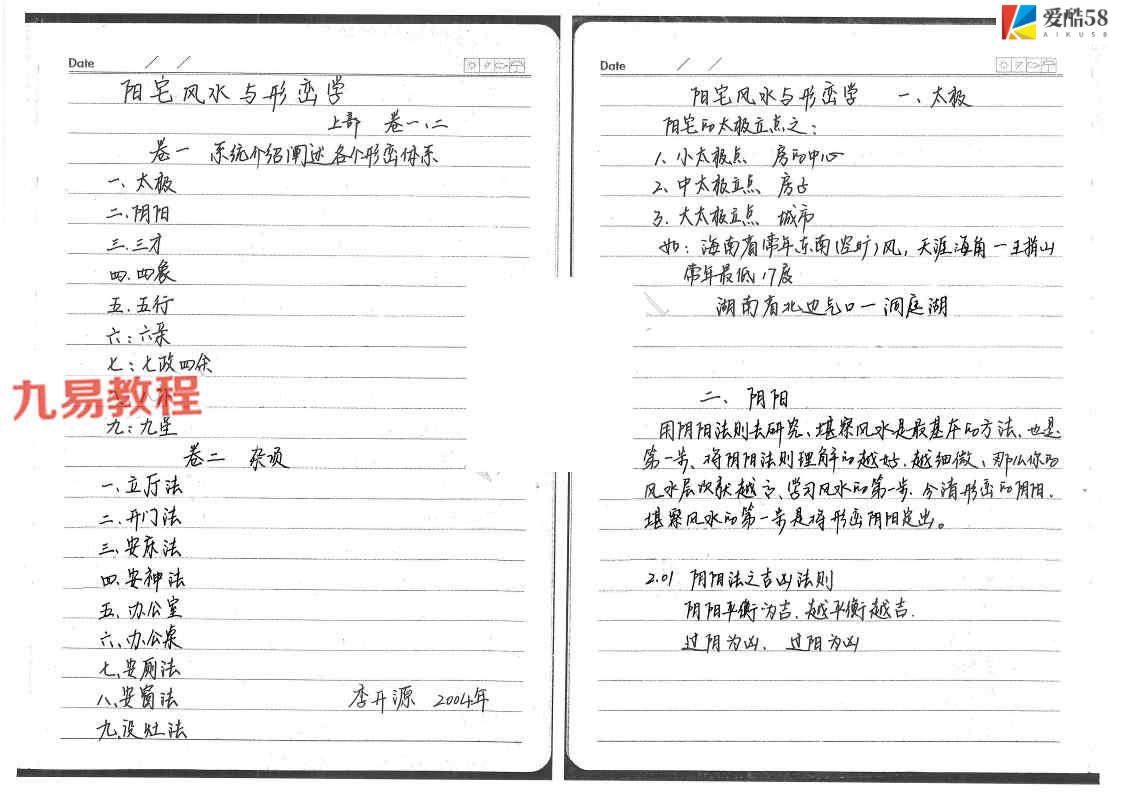 爱酷58
AIKU58
Date / /
阳宅风水与形峦学
上部 卷一、二
卷一 系统介绍阐述各个形峦体系
一、太极
二、阴阳
三、三才
四、四象
五、五行
六：六亲
七：七政四余
九易教程
九：九星
卷二 杂项
一、立厅法
二、开门法
三、安床法
四、安神法
五、办公室
六、办公桌
七、安厕法
八、安窗法
李开源 2004年
九、设灶法
Date / /
阳宅风水与形峦学 一、太极
阳宅的太极立点之：
1、小太极点 房的中心
2、中太极立点 房占
3、大太极立点 城市
如：海南省常年东南(空旷)风，天涯海角一王指山
常年最低17度
湖南省北边气口一洞庭湖
二、阴阳
用阴阳法则去研究、堪察风水是最基本的方法、也是
第一步、将阴阳法则理解的越好、越细微、那么你的
风水层次就越高、学习风水的第一步、分清形峦的阴阳、
堪察风水的第一步是将形峦阴阳定出。
2.01 阴阳法之吉凶法则
阴阳平衡为吉、越平衡越吉.
过阴为凶、过阳为凶